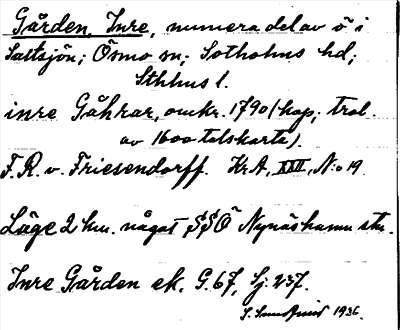 Gården, Inre, numera del av ö i
Saltsjön; Ösmo sn; Sotholms hd;
Sthlms l.
inre Gåhrar, omkr. 1790 (kop; trol.
av 1600 talskarta).
F. R. v. Friesendorff. Kr A, XXII, N:o 19.
Läge 2 km. något SSÖ Nynäshamn stn.
Inre Gården ek. G. 67, Sj. 237.
1936.